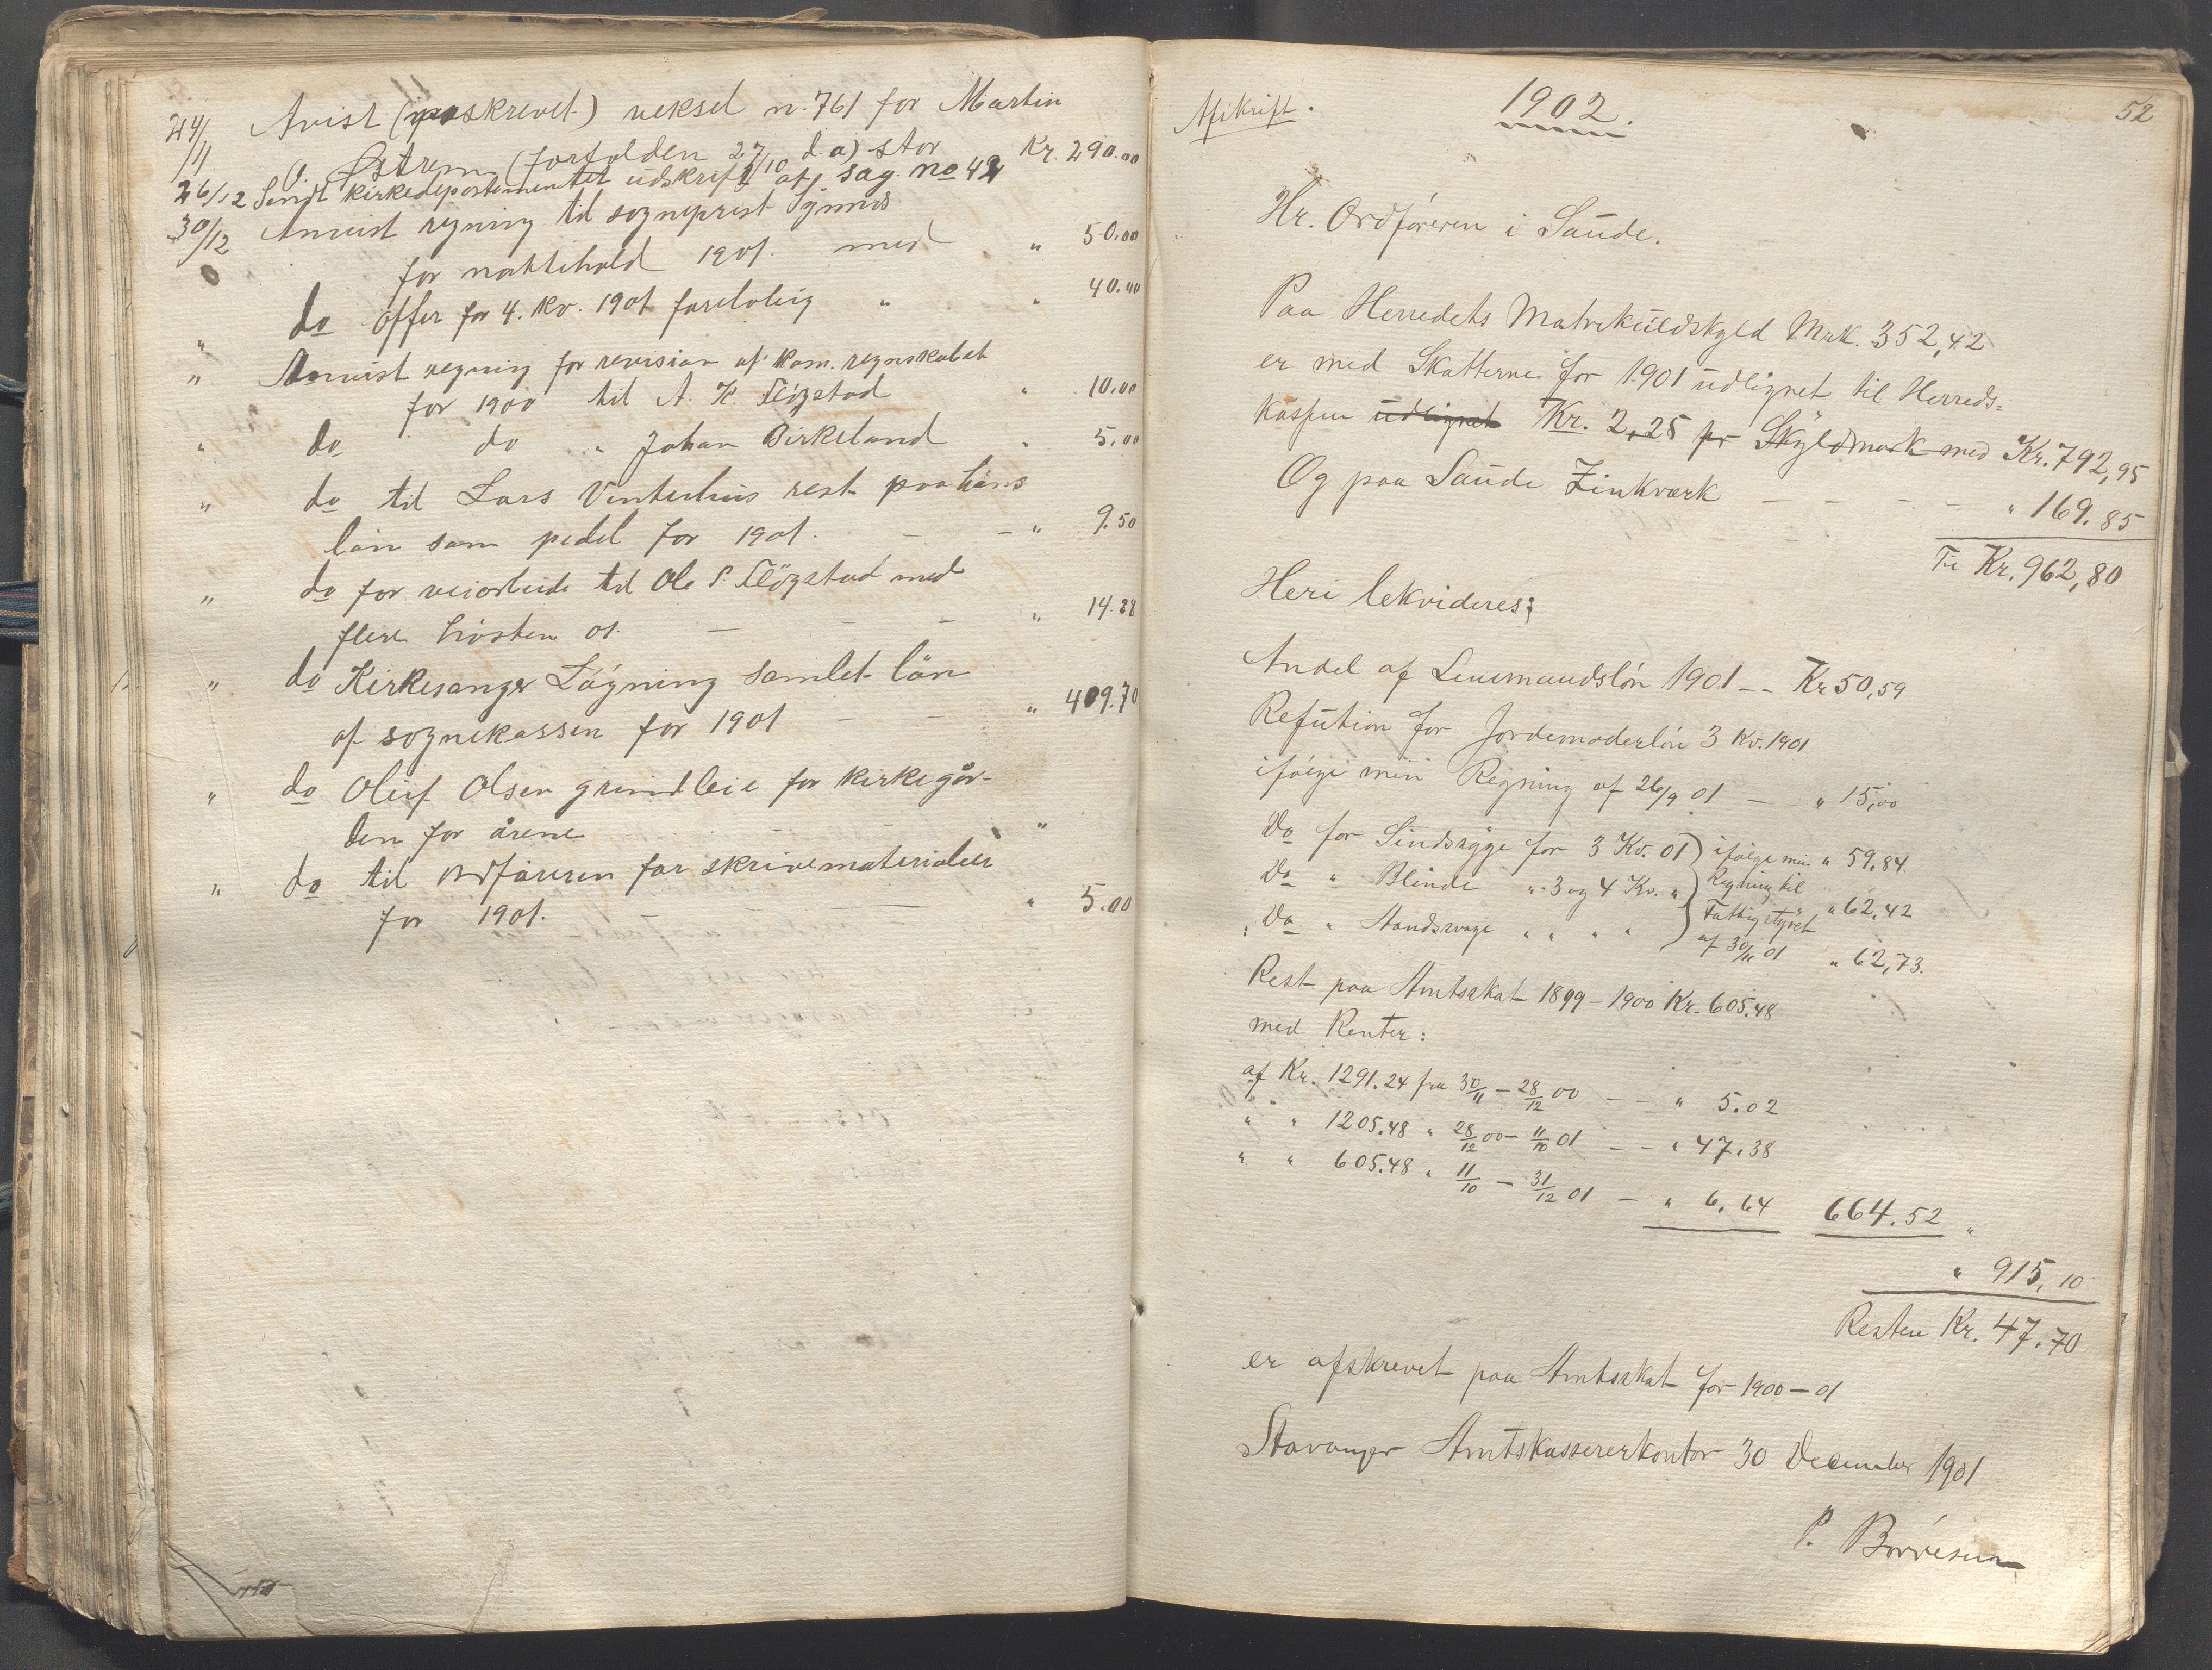 24/11 Avist (paaskrevet) veksel n. 761 for Martin
O. Østrem (forfalden 27/10 d. a) stor Kr. 290.00
26/12 Sendt kirkedepartementet udskrift af sag no 42
30/12 Anvist regning til sogneprest
for nattehold 1901. med " 50.00
" do offer for 4. kv. 1901 foreløbig " " 40.00
" Anvist regning for revision af kom. regnskabet
for 1900 til A. K. Fløgstad " 10.00
" do do " Johan Birkeland " 5.00
" do til Lars Vinterhus rest paa hans
løn som pedel for 1901. — — " 9.50
" do for veiarbeide til Ole P. Fløgstad med
flere høsten 01. — — — " 14.28
" do Kirkesanger Løgning samlet løn
af sognekassen for 1901 — — " 409.70
" do Oluf Olsen grundleie for kirkegår-
den for årene "
" do til ordføreren for skrivematerialer
for 1901. — — " 5.00
52
Afskrift. 1902.
Hr. Ordføreren i Saude.
Paa Herredets Matrikulskyld Mrk. 352,42
er med Skatterne for 1901 udlignet til Herreds-
kassen udlignet Kr. 2,25 pr Skyldmark med Kr. 792,95
Og paa Saude Zinkværk — — — — " 169.85
Kr. 962,80
Heri lekvideres;
Andel af Lensmandsløn 1901 -- Kr 50,59
Refution for Jordemoderløn 3 Kv. 1901
ifølge min Regning af 26/9 01 — " 15,00
Do for Sindsyge for 3 Kv. 01) ifølge min " 59.84
Do " Blinde " 3 og 4 Kv. " Regning til " 62,42
Do " Aandssvage " " " " Fattigstyret
af 30/11 01 " 62,73.
Rest paa Amtsskat 1899-1900 Kr. 605.48
med Renter:
af Kr. 1291.24 fra 30/11 - 28/12 00 — — " 5.02
" " 1205.48 " 28/12 00 - 11/10 01 — — " 47.38
" " 605.48 " 11/10 - 31/12 01 — " 6,64 664.52 "
" 915,10
Resten Kr. 47.70
er afskrevet paa Amtsskat for 1900-01
Stavanger Amtskassererkontor 30 December 1901
P. Børresen